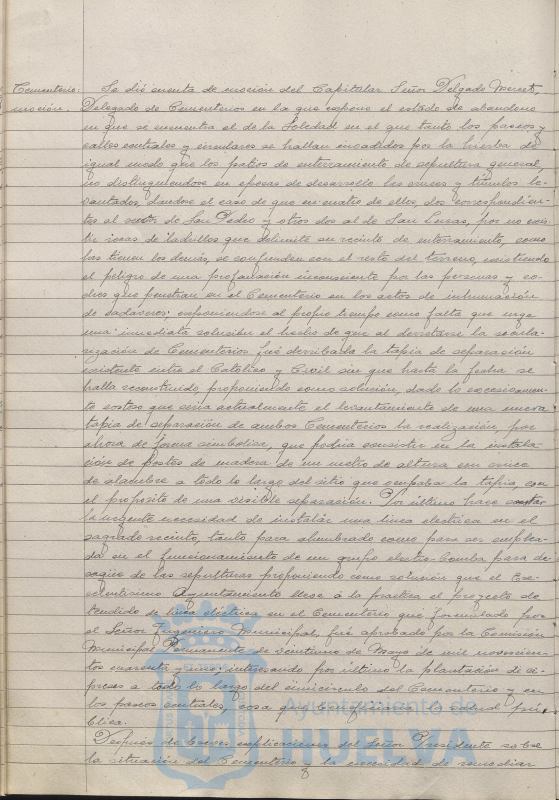 Cementerio: Se dió cuenta de moción del Capitular Señor Delgado
moción. Delegado de Cementerios en la que expone el estado de abandono
en que se encuentra el de la Soledad en el que tanto los paseos y
calles centrales y circulares se hallan invadidos por la hierba de
igual modo que los patios de enterramiento de sepultura general,
no distinguiendose en epocas de desarrollo las cruces y túmulos le-
vantados, dandose el caso de que en cuatro de ellos, dos correspondien-
tes al sector de San Pedro y otros dos al de San Lucas, por no exis-
tir de ladrillos que delimite su recinto de enterramiento, como
las tienen los demás, se confunden con el resto del terreno, existiendo
el peligro de una profanación inconsciente por las personas y
que penetran en el Cementerio en los actos de inhumación
de cadáveres; exponiendose al propio tiempo como falta que urge
una inmediata solución el hecho de que al decretarse la secula-
rización de Cementerios fué derribada la tapia de separación
existente entre el Católico y Civil sin que hasta la fecha se
halla reconstruido, proponiendo como solución, dado lo excesivamen-
te costoso que sería actualmente el levantamiento de una nueva
tapia de separación de ambos Cementerios la realización, por
ahora de forma simbolica, que podria consistir en la instala-
ción de postes de madera de un metro de altura con cruce
de alambre a todo lo largo del sitio que ocupaba la tapia, con
el proposito de una visible separación. Por último hace constar
la urgente necesidad de instalar una linea electrica en el
sagrado recinto, tanto para alumbrado como para ser emplea-
da en el funcionamiento de un grupo electro-bomba para de-
sagüe de las sepulturas proponiendo como solución que el Exce-
lentisimo Ayuntamiento lleve á la practica el proyecto de
tendido de linea eléctrica en el Cementerio que formulado por
el Señor Ingeniero Municipal, fué aprobado por la Comisión
Municipal Permanente de veintiuno de Mayo de mil novecien-
tos cuarenta y uno; interesando por último la plantación de ci-
preses a todo lo largo del semicirculo del Cementerio y en
los paseos centrales, cosa que beneficia la salud pú-
blica.
Despues de breves explicaciones del Señor Presidente sobre
la situación del Cementerio y la necesidad de remediar
8
Ayuntamiento de
HUELVA